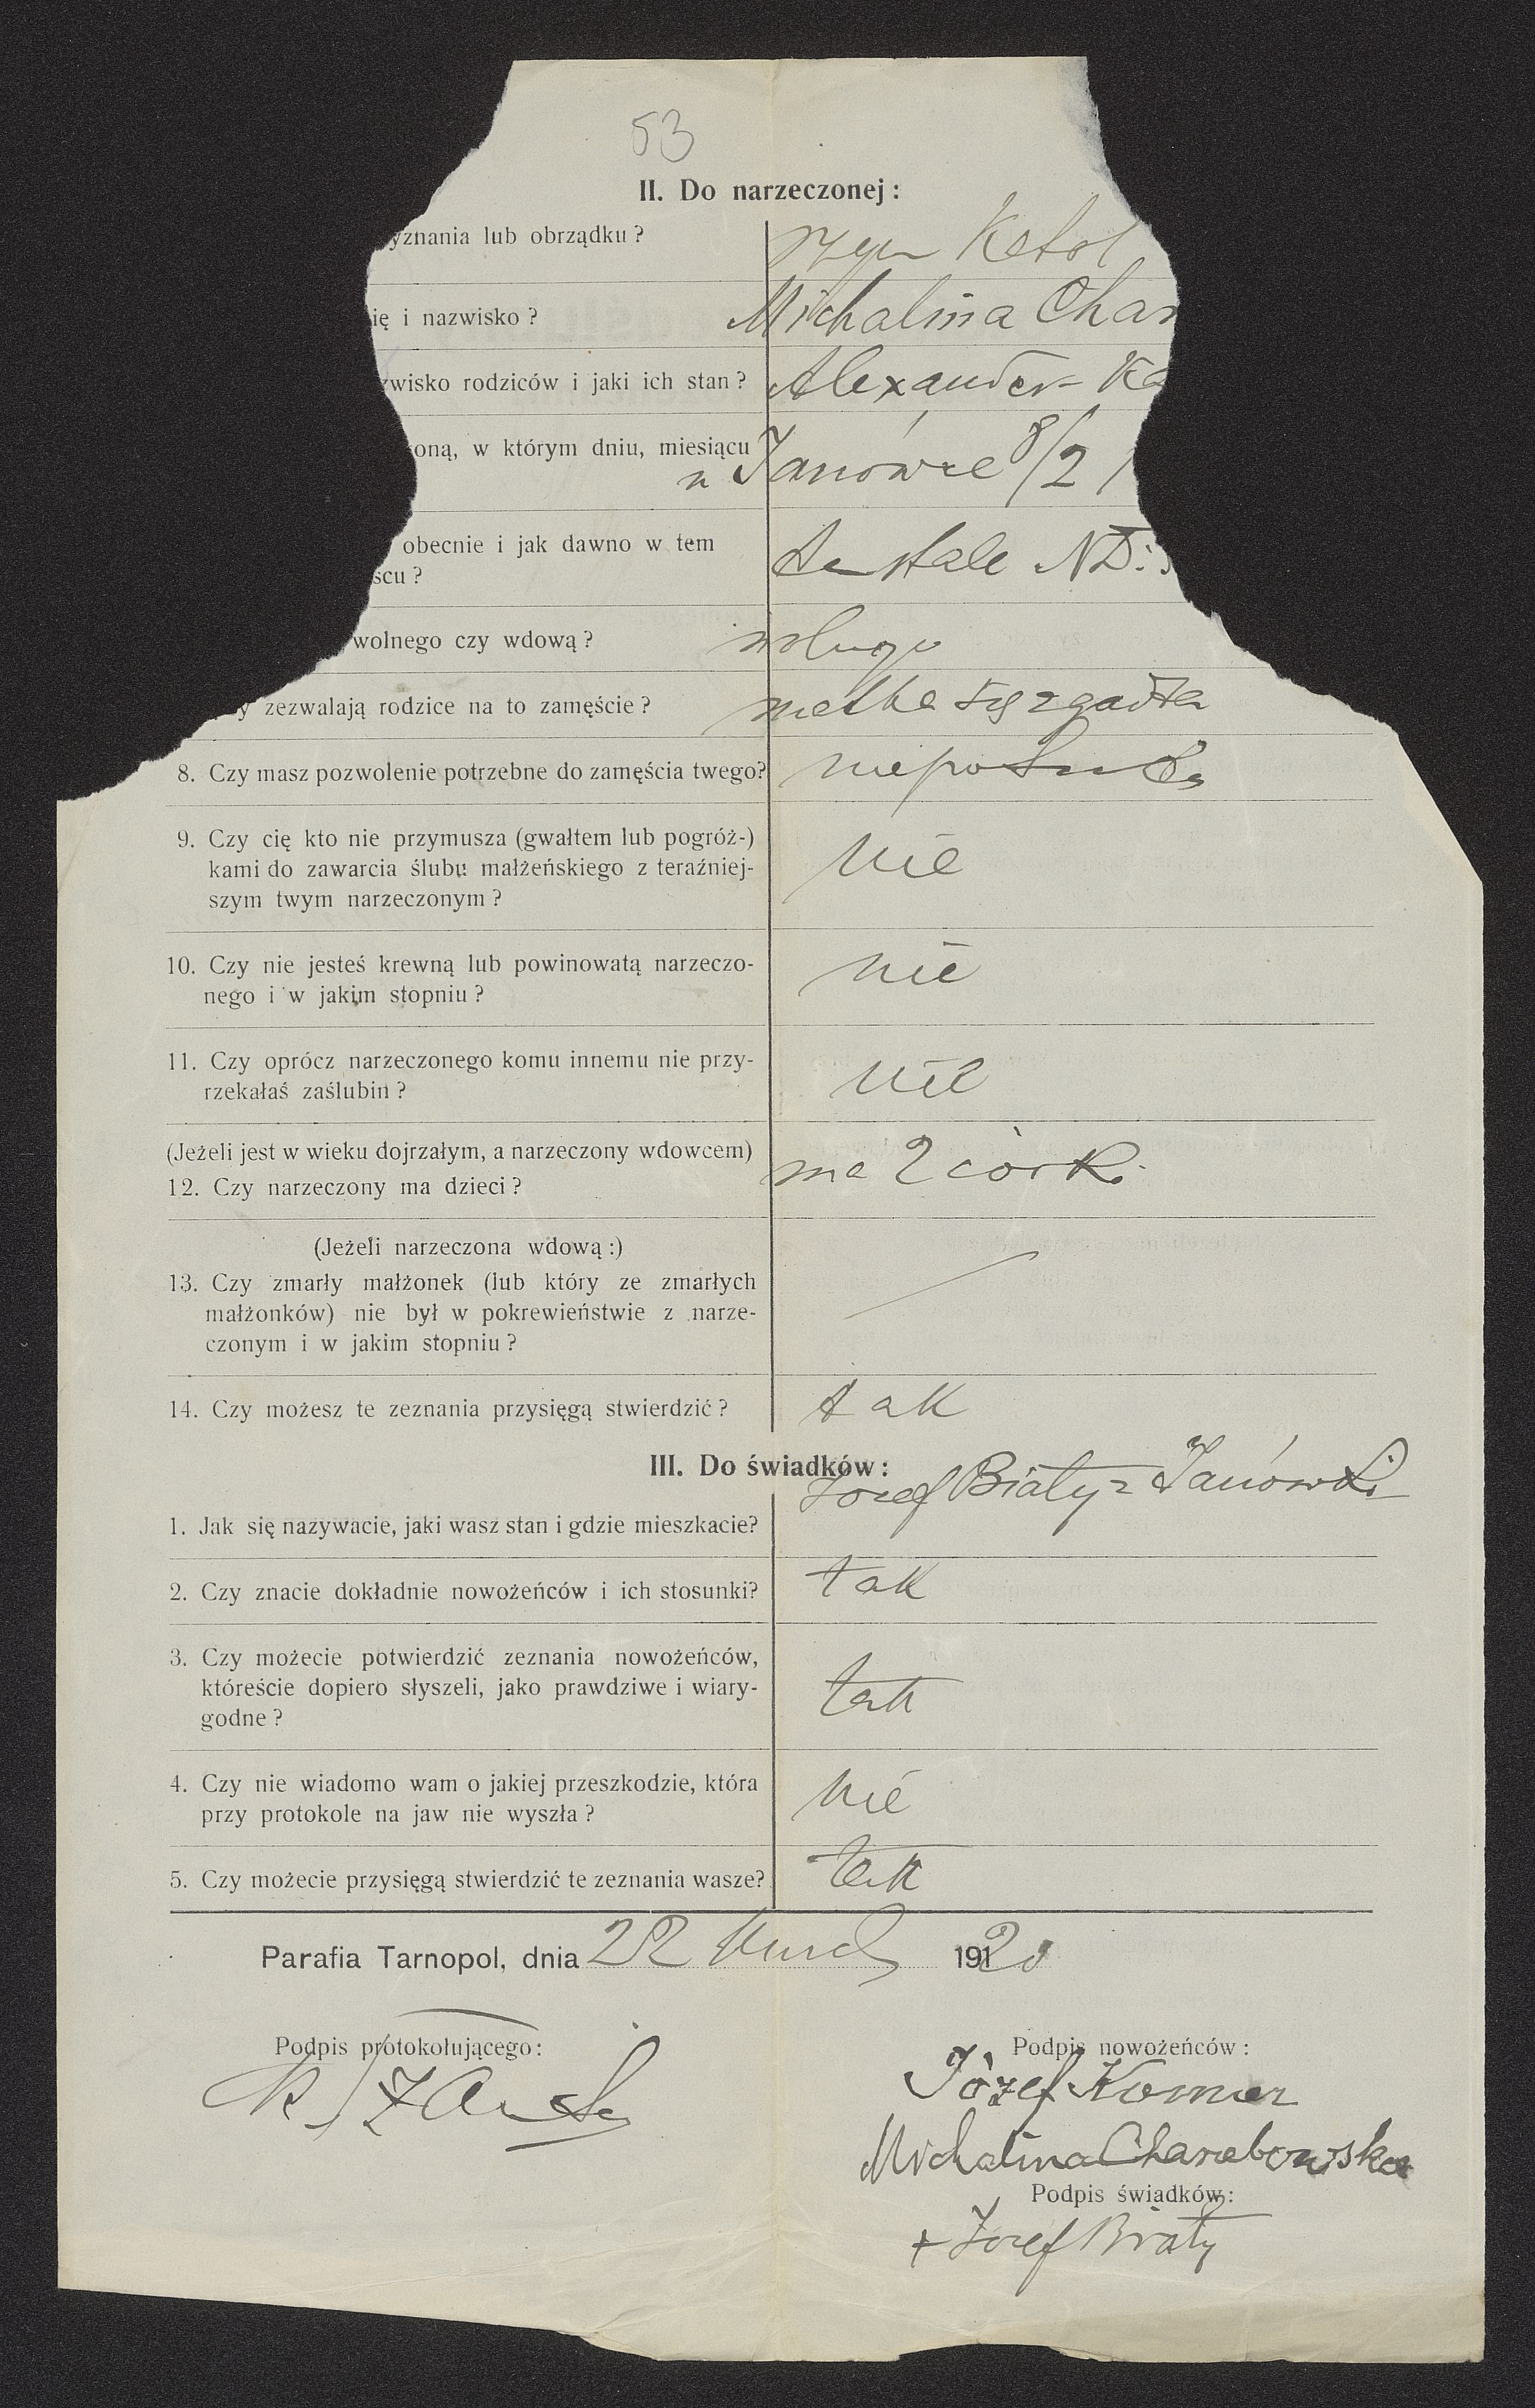 53
II. Do narzeczonej:
yznania lub obrządku? rzym Katol
ię i nazwisko? Michalina Char
zwisko rodziców i jaki ich stan? Alexander Ka
oną, w którym dniu, miesiącu
w Janówce 8/2 1
obecnie i jak dawno w tem
scu? stale
wolnego czy wdową? wolnego
y zezwalają rodzice na to zamęście? matka się zgadza
8. Czy masz pozwolenie potrzebne do zamęścia twego?
9. Czy cię kto nie przymusza (gwałtem lub pogróż-)
kami do zawarcia ślubu małżeńskiego z teraźniej- nie
szym twym narzeczonym?
10. Czy nie jesteś krewną lub powinowatą narzeczo- nie
nego i w jakim stopniu?
11. Czy oprócz narzeczonego komu innemu nie przy- nie
rzekałaś zaślubin?
(Jeżeli jest w wieku dojrzałym, a narzeczony wdowcem) ma 2 córki
12. Czy narzeczony ma dzieci?
(Jeżeli narzeczona wdową:)
13. Czy zmarły małżonek (lub który ze zmarłych
małżonków) nie był w pokrewieństwie z narze-
czonym i w jakim stopniu?
14. Czy możesz te zeznania przysięgą stwierdzić? tak
III. Do świadków:
Józef Biały z Janówki
1. Jak się nazywacie, jaki wasz stan i gdzie mieszkacie?
2. Czy znacie dokładnie nowożeńców i ich stosunki? tak
3. Czy możecie potwierdzić zeznania nowożeńców,
któreście dopiero słyszeli, jako prawdziwe i wiary- tak
godne?
4. Czy nie wiadomo wam o jakiej przeszkodzie, która nie
przy protokole na jaw nie wyszła?
5. Czy możecie przysięgą stwierdzić te zeznania wasze? tak
Parafia Tarnopol, dnia 22 191 20
Podpis protokołującego: Podpis nowożeńców:
Józef Komer
Michalina Charebowska
Podpis świadków:
+ Józef Biały